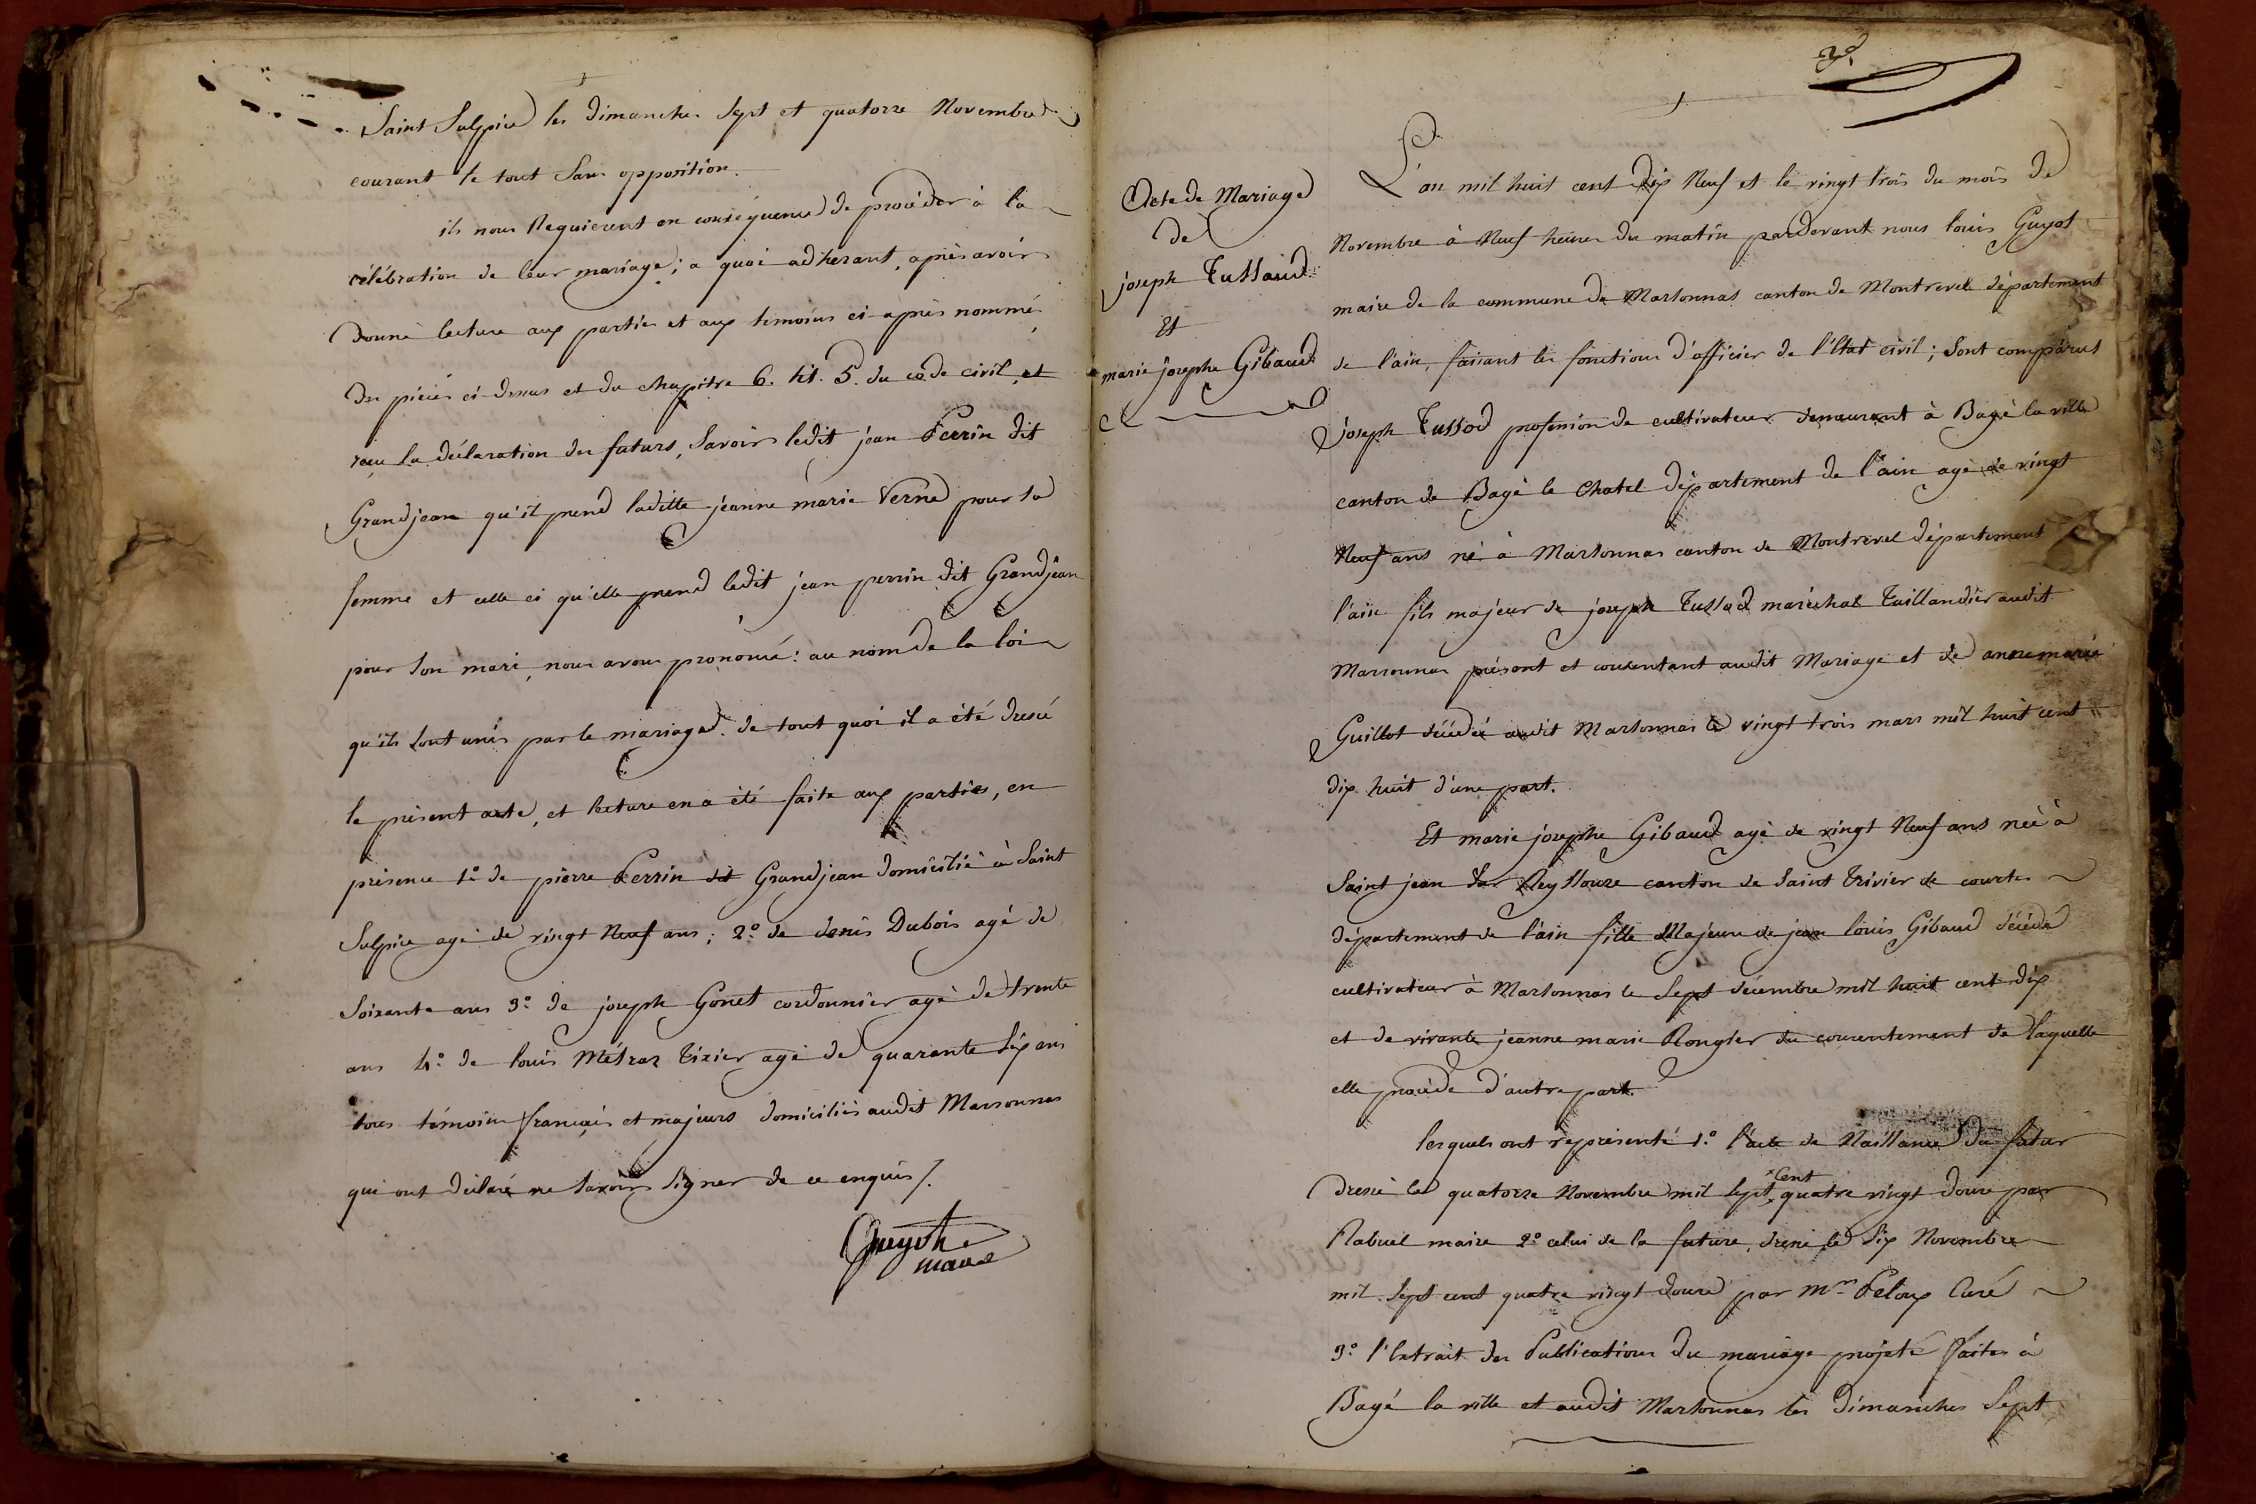 Saint Sulpice les dimanches sept et quatorze Novembre
courant le tout sans opposition.
ils nous Requierent en conséquence de procéder à la
célébration de leur mariage; a quoi adhérant, après avoir
donné lecture aux parties et aux témoins ci-après nommés
des pièces ci-dessus et du chapitre 6. tit. 5. du code civil, et
reçu la déclaration des futurs, Savoir ledit jean Perrin dit
Grandjean qu'il prend laditte jeanne marie Verne pour sa
femme et celle ci qu'elle prend ledit jean perrin dit Grandjean
pour son mari, nous avons prononcé: au nom de la loi
qu'ils sont unis par le mariage. de tout quoi il a été dressé
le présent acte, et lecture en a été faite aux parties, en
présence 1.° de pierre Perrin dit Grandjean domicilié à Saint
Sulpice agé de vingt Neuf ans; 2.° de denis Dubois agé de
Soixante ans 3.° de joseph Gonet cordonnier agé de trente
ans 4.° de louis Métraz Tixier agé de quarante six ans
tous témoins français et majeurs domiciliés audit Marsonnas
qui ont déclaré ne savoir signer de ce enquis /.
Guyot
maire
Acte de Mariage
de
joseph Tussaud
Et
marie josephe Gibaud
L'an mil huit cent dix Neuf et le vingt trois du mois de
Novembre à Neuf heures du matin pardevant nous louis Guyot
maire de la commune de Marsonnas canton de Montrevel département
de l'ain, faisant les fonctions d'officier de l'Etat civil; Sont comparus
joseph Tussod profession de cultivateur demeurant à Bagé la ville
canton de Bagé le Chatel département de l'ain agé de vingt
Neuf ans né à Marsonnas canton de Montrevel département
l'ain fils majeur de joseph Tussod maréchal Taillandier audit
Marsonnas présent et consentant audit Mariage et de anne marie
Guillot décédée audit Marsonnas le vingt trois mars mil huit cent
dix huit d'une part.
Et marie josephe Gibaud agé de vingt Neuf ans née à
Saint jean sur Reyssouze canton de Saint Trivier de courtes
département de l'ain fille Majeure de jean louis Gibaud décédé
cultivateur à Marsonnas le Sept décembre mil huit cent dix
et de vivante jeanne marie Rongier du consentement de laquelle
elle procède d'autre part.
lesquels ont représenté 1.° l'acte de Naissance du futur
dressé le quatorze Novembre mil sept cent quatre vingt douze par
Rabuel maire 2.° celui de la future, dressé le Six Novembre
mil sept cent quatre vingt douze par Mr. Peloux Curé
3.° l'Extrait des Publications du mariage projeté faites à
Bagé la ville et audit Marsonnas les dimanches Sept